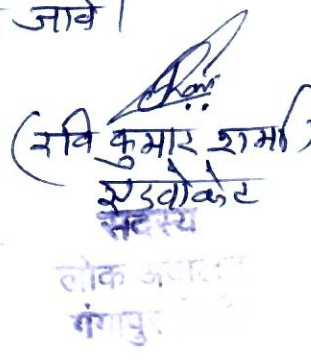 जावे।
(रवि कुमार शर्मा)
एडवोकेट
सदस्य
लोक अदालत
गंगापुर